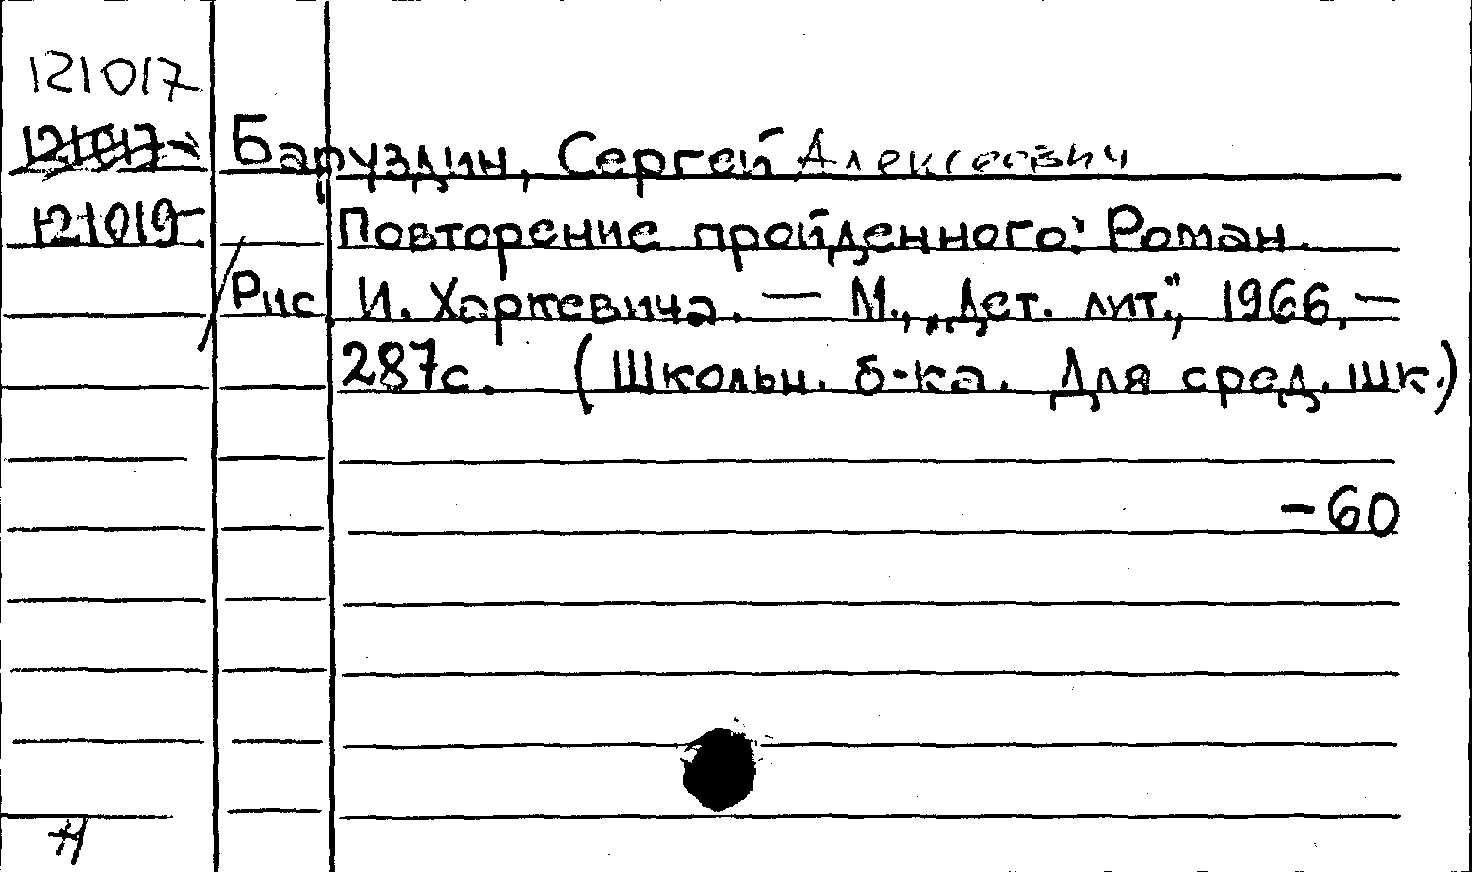 121017
121017- Баруздин, Сергей Алексеевич
121019- Повторение пройденного: Роман.
Рис И. Харкевича. — М., „Дет. лит.", 1966, —
287с. (Школьн. б-ка. Для сред. шк.)
-60